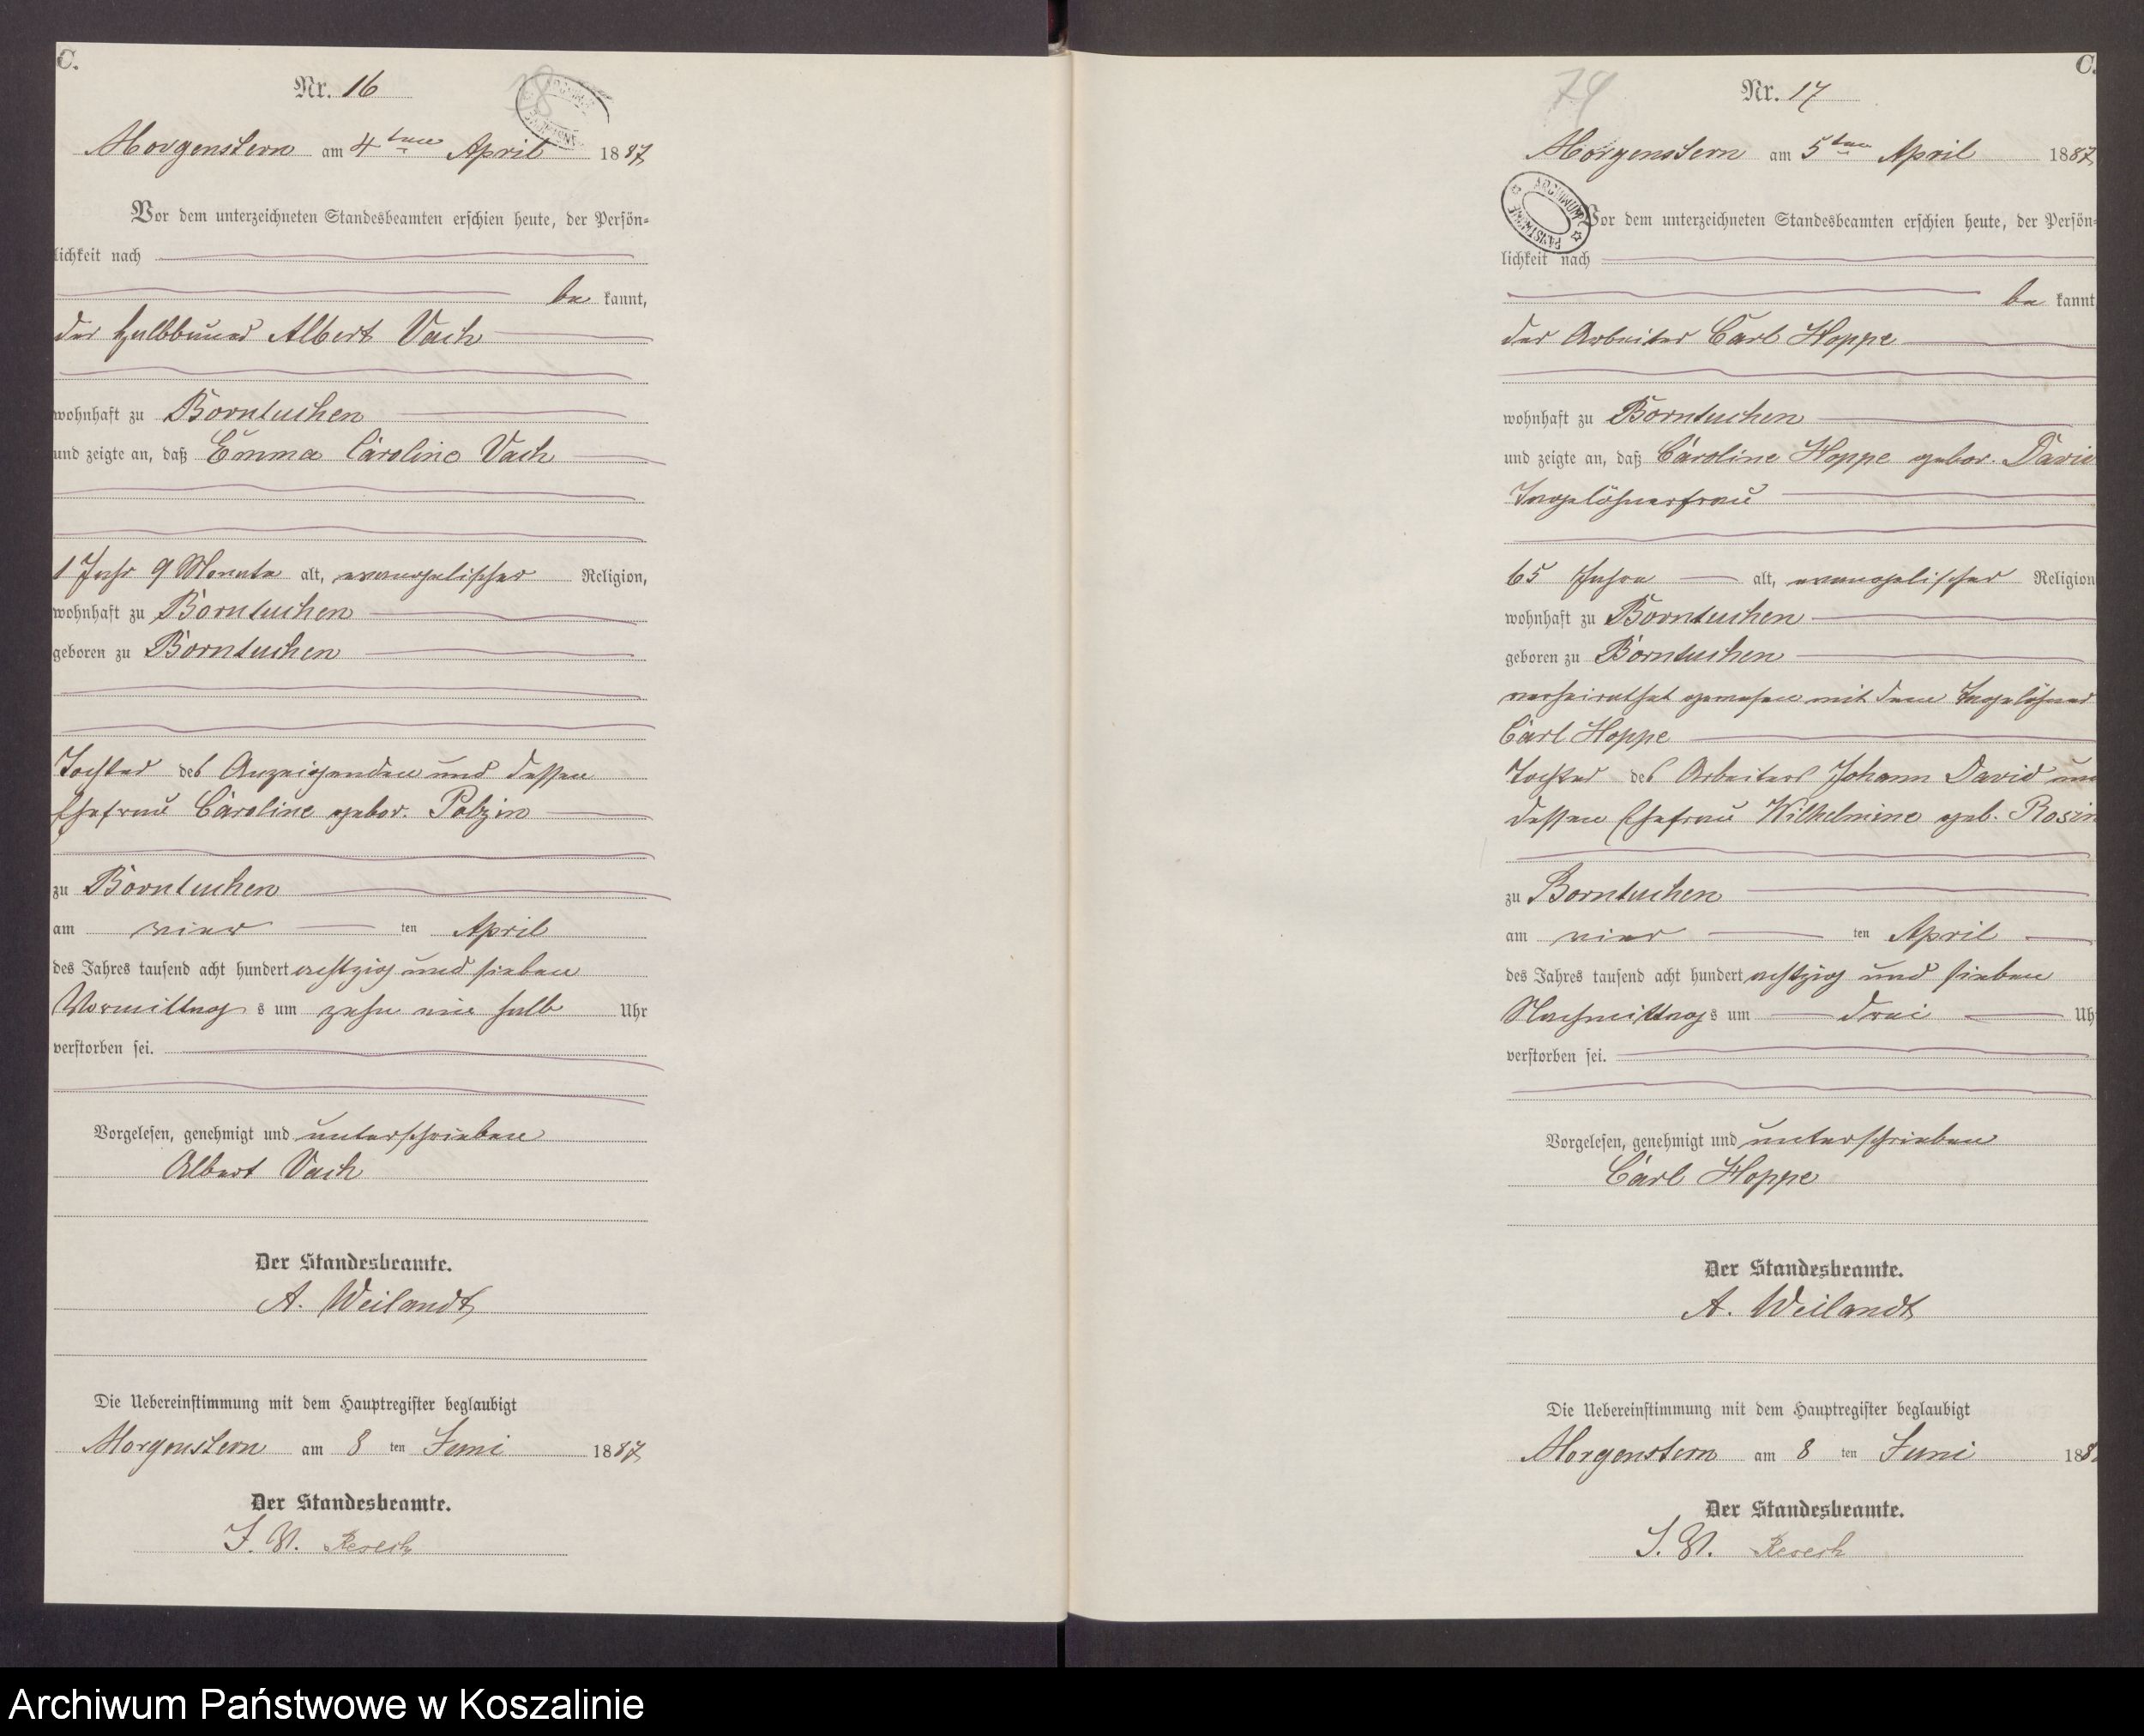 C.
Nr. 16
Morgenstern am 4ten April 1887
Vor dem unterzeichneten Standesbeamten erschien heute, der Persön-
lichkeit nach
be kannt,
der Halbbauer Albert Vach
wohnhaft zu Borntuchen
und zeigte an, daß Emma Caroline Vach
1 Jahr 9 Monate alt, evangelischer Religion,
wohnhaft zu Borntuchen
geboren zu Borntuchen
Tochter des Anzeigenden und dessen
Ehefrau Caroline gebor. Polzin
zu Borntuchen
am vier ten April
des Jahres tausend acht hundert achtzig und sieben
Vormittag s um zehn ein halb Uhr
verstorben sei.
Vorgelesen, genehmigt und unterschrieben
Albert Vach
Der Standesbeamte.
A. Weilandt
Die Uebereinstimmung mit dem Hauptregister beglaubigt
Morgenstern am 8 ten Juni 1887
Der Standesbeamte.
J. V.
C.
74
Nr. 17
Morgenstern am 5ten April 1887
ARCHIWUM PAŃSTWOWE
Vor dem unterzeichneten Standesbeamten erschien heute, der Persön-
lichkeit nach
be kannt
der Arbeiter Carl Hoppe
wohnhaft zu Borntuchen
und zeigte an, daß Caroline Hoppe gebor. David
Tagelöhnerfrau
65 Jahre alt, evangelischer Religion
wohnhaft zu Borntuchen
geboren zu Borntuchen
verheirathet gewesen mit dem Tagelöhner
Carl Hoppe
Tochter des Arbeiters Johann David un
dessen Ehefrau Wilhelmine geb. Rosin
zu Borntuchen
am vier ten April
des Jahres tausend acht hundert achtzig und sieben
Nachmittag s um drei Uh
verstorben sei.
Vorgelesen, genehmigt und unterschrieben
Carl Hoppe
Der Standesbeamte.
A. Weilandt
Die Uebereinstimmung mit dem Hauptregister beglaubigt
Morgenstern am 8 ten Juni 188
Der Standesbeamte.
J. V.
Archiwum Państwowe w Koszalinie